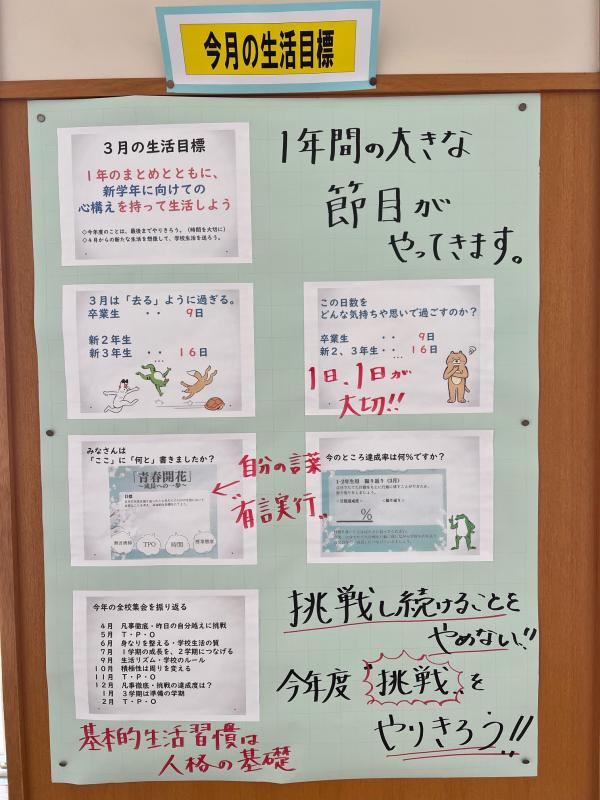 今月の生活目標
3月の生活目標
1年のまとめとともに、
新学年に向けての
心構えを持って生活しよう
◇今年度のことは、最後までやりきろう。(時間を大切に)
◇4月からの新たな生活を想像して、学校生活を送ろう。
1年間の大きな
節目が
やってきます。
3月は「去る」ように過ぎる。
卒業生 ・・ 9日
新2年生
新3年生 ・・ 16日
この日数を
どんな気持ちや思いで過ごすのか?
卒業生 ・・ 9日
新2、3年生・・ 16日
1日、1日が
大切!!
みなさんは
「ここ」に「何と」書きましたか?
「青春開花」
~成長への一歩~
目標
TPO
時間
授業態度
自分の言葉
有言実行
今のところ達成率は何%ですか?
1・2年生用 振り返り(3月)
%
今年の全校集会を振り返る
4月 凡事徹底・昨日の自分越えに挑戦
5月 T・P・O
6月 身なりを整える・学校生活の質
7月 1学期の成長を、2学期につなげる
9月 生活リズム・学校のルール
10月 積極性は周りを変える
11月 T・P・O
12月 凡事徹底・挑戦の達成度は?
1月 3学期は準備の学期
2月 T・P・O
基本的生活習慣は
人格の基礎
挑戦し続けることを
やめない!!
今年度"挑戦"を
やりきろう!!